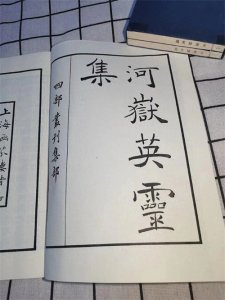 河嶽英靈
集
四部叢刊集部
上海